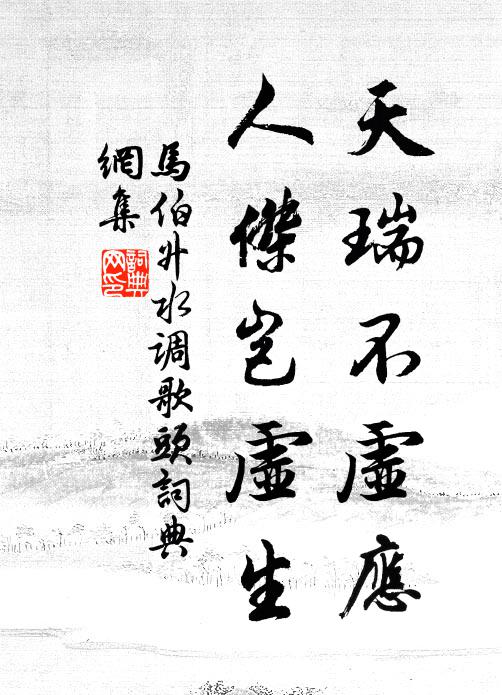 天瑞不虛應
人傑豈虛生
馬伯升水調歌頭詞典
網集
詞典
网印